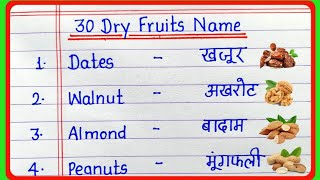 30 Dry Fruits Name
1. Dates - खजूर
2. Walnut - अखरोट
3. Almond - बादाम
4. Peanuts - मूंगफली